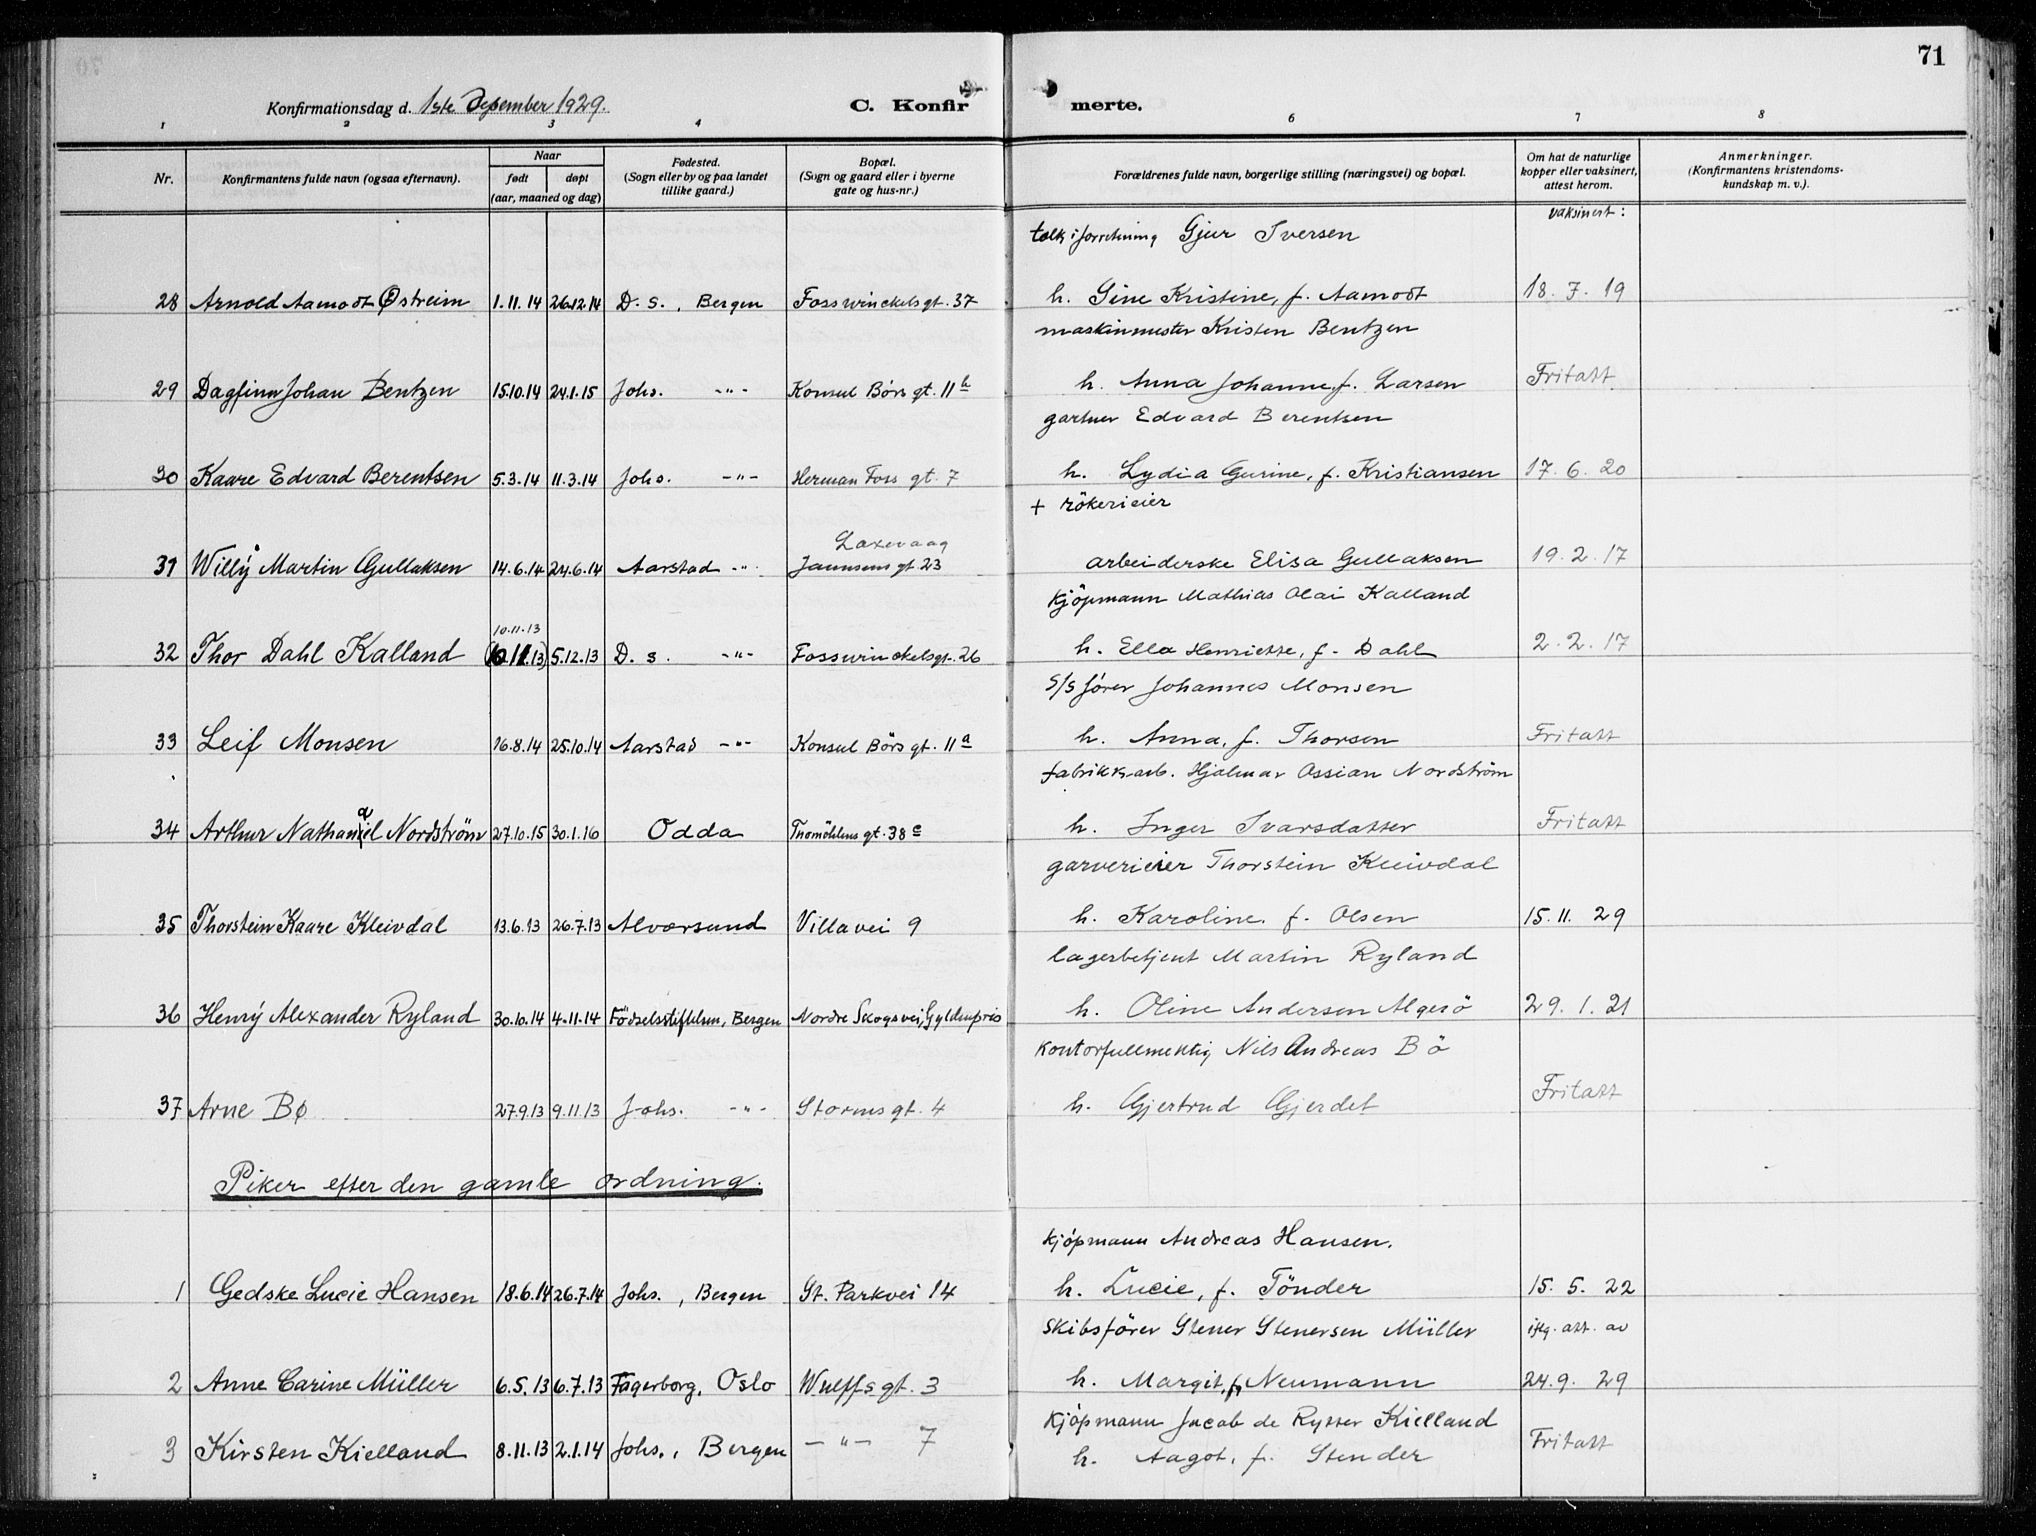 71
Konfirmationsdag d. 1ste Desember 1929.
C. Konfir
merte.
1 2 3 4 6 7 8
Nr.
Konfirmantens fulde navn (ogsaa efternavn).
Naar
født døpt
(aar, maaned og dag)
Fødested.
(Sogn eller by og paa landet
tillike gaard.)
Bopæl.
(Sogn og gaard eller i byerne
gate og hus-nr.)
Forældrenes fulde navn, borgerlige stilling (næringsvei) og bopæl.
Om hat de naturlige
kopper eller vaksinert,
attest herom.
Anmerkninger.
(Konfirmantens kristendoms-
kundskap m. v.).
vaksinert:
Gjur Iversen
28 Arnold Aamodt Østreim 1.11.14 26.12.14 D. s., Bergen Fosswinckelsgt. 37 h. Gine Kristine, f. Aamodt 18. 7. 19
maskinmester Kristen Bentzen
29 Dagfinn Johan Bentzen 15.10.14 24.1.15 Johs. -"- Konsul Børs gt. 11 b h. Anna Johanne, f. Larsen Fritatt
gartner Edvard Berentsen
30 Kaare Edvard Berentsen 5.3.14 11.3.14 Johs. -"- Herman Foss gt. 7 h. Lydia Gurine, f. Kristiansen 17. 6. 20
+ rökerieier
Laxevaag
31 Willy Martin Gullaksen 14.6.14 24.6.14 Aarstad -"- Jannsens gt. 23 arbeiderske Elisa Gullaksen 19. 2. 17
kjöpmann Mathias Olai Kalland
10.11.13
32 Thor Dahl Kalland (10.11.13) 5.12.13 D. s. -"- Fosswinckelsgt. 26 h. Ella Henriette, f. Dahl 2. 2. 17
S/S förer Johannes Monsen
33 Leif Monsen 16.8.14 25.10.14 Aarstad -"- Konsul Børs gt. 11 a h. Anna, f. Thorsen Fritatt
fabrikkarb. Hjalmar Ossian Nordström
34 Arthur Nathanael Nordstrøm 27.10.15 30.1.16 Odda Thormöhlens gt. 38 c h. Inger Ivarsdatter Fritatt
garverieier Thorstein Kleivdal
35 Thorstein Kaare Kleivdal 13.6.13 26.7.13 Alversund Villavei 9 h. Karoline, f. Olsen 15. 11. 29
lagerbetjent Martin Ryland
36 Henry Alexander Ryland 30.10.14 4.11.14 Födselsstiftelsen, Bergen Nordre Skogsvei, Gyldenpris h. Oline Andersen Algerö 29. 1. 21
kontorfullmektig Nils Andreas Bö
37 Arne Bø 27.9.13 9.11.13 Johs. -"- Storms gt. 4 h. Gjertrud Gjerdet Fritatt
Piker efter den gamle ordning.
kjöpmann Andreas Hansen.
1 Gedske Lucie Hansen 18.6.14 26.7.14 Johs., Bergen St. Parkvei 14 h. Lucie, f. Tönder 15. 5. 22
Skibsförer Stener Stenersen Müller iflg. att. av
2 Anne Carine Müller 6.5.13 6.7.13 Fagerborg, Oslo Wulffs gt. 3 h. Margit, f. Neumann 24. 9. 29
kjöpmann Jacob de Rytter Kielland
3 Kirsten Kielland 8.11.13 2.1.14 Johs., Bergen -"- 7 h. Aagot, f. Stender Fritatt